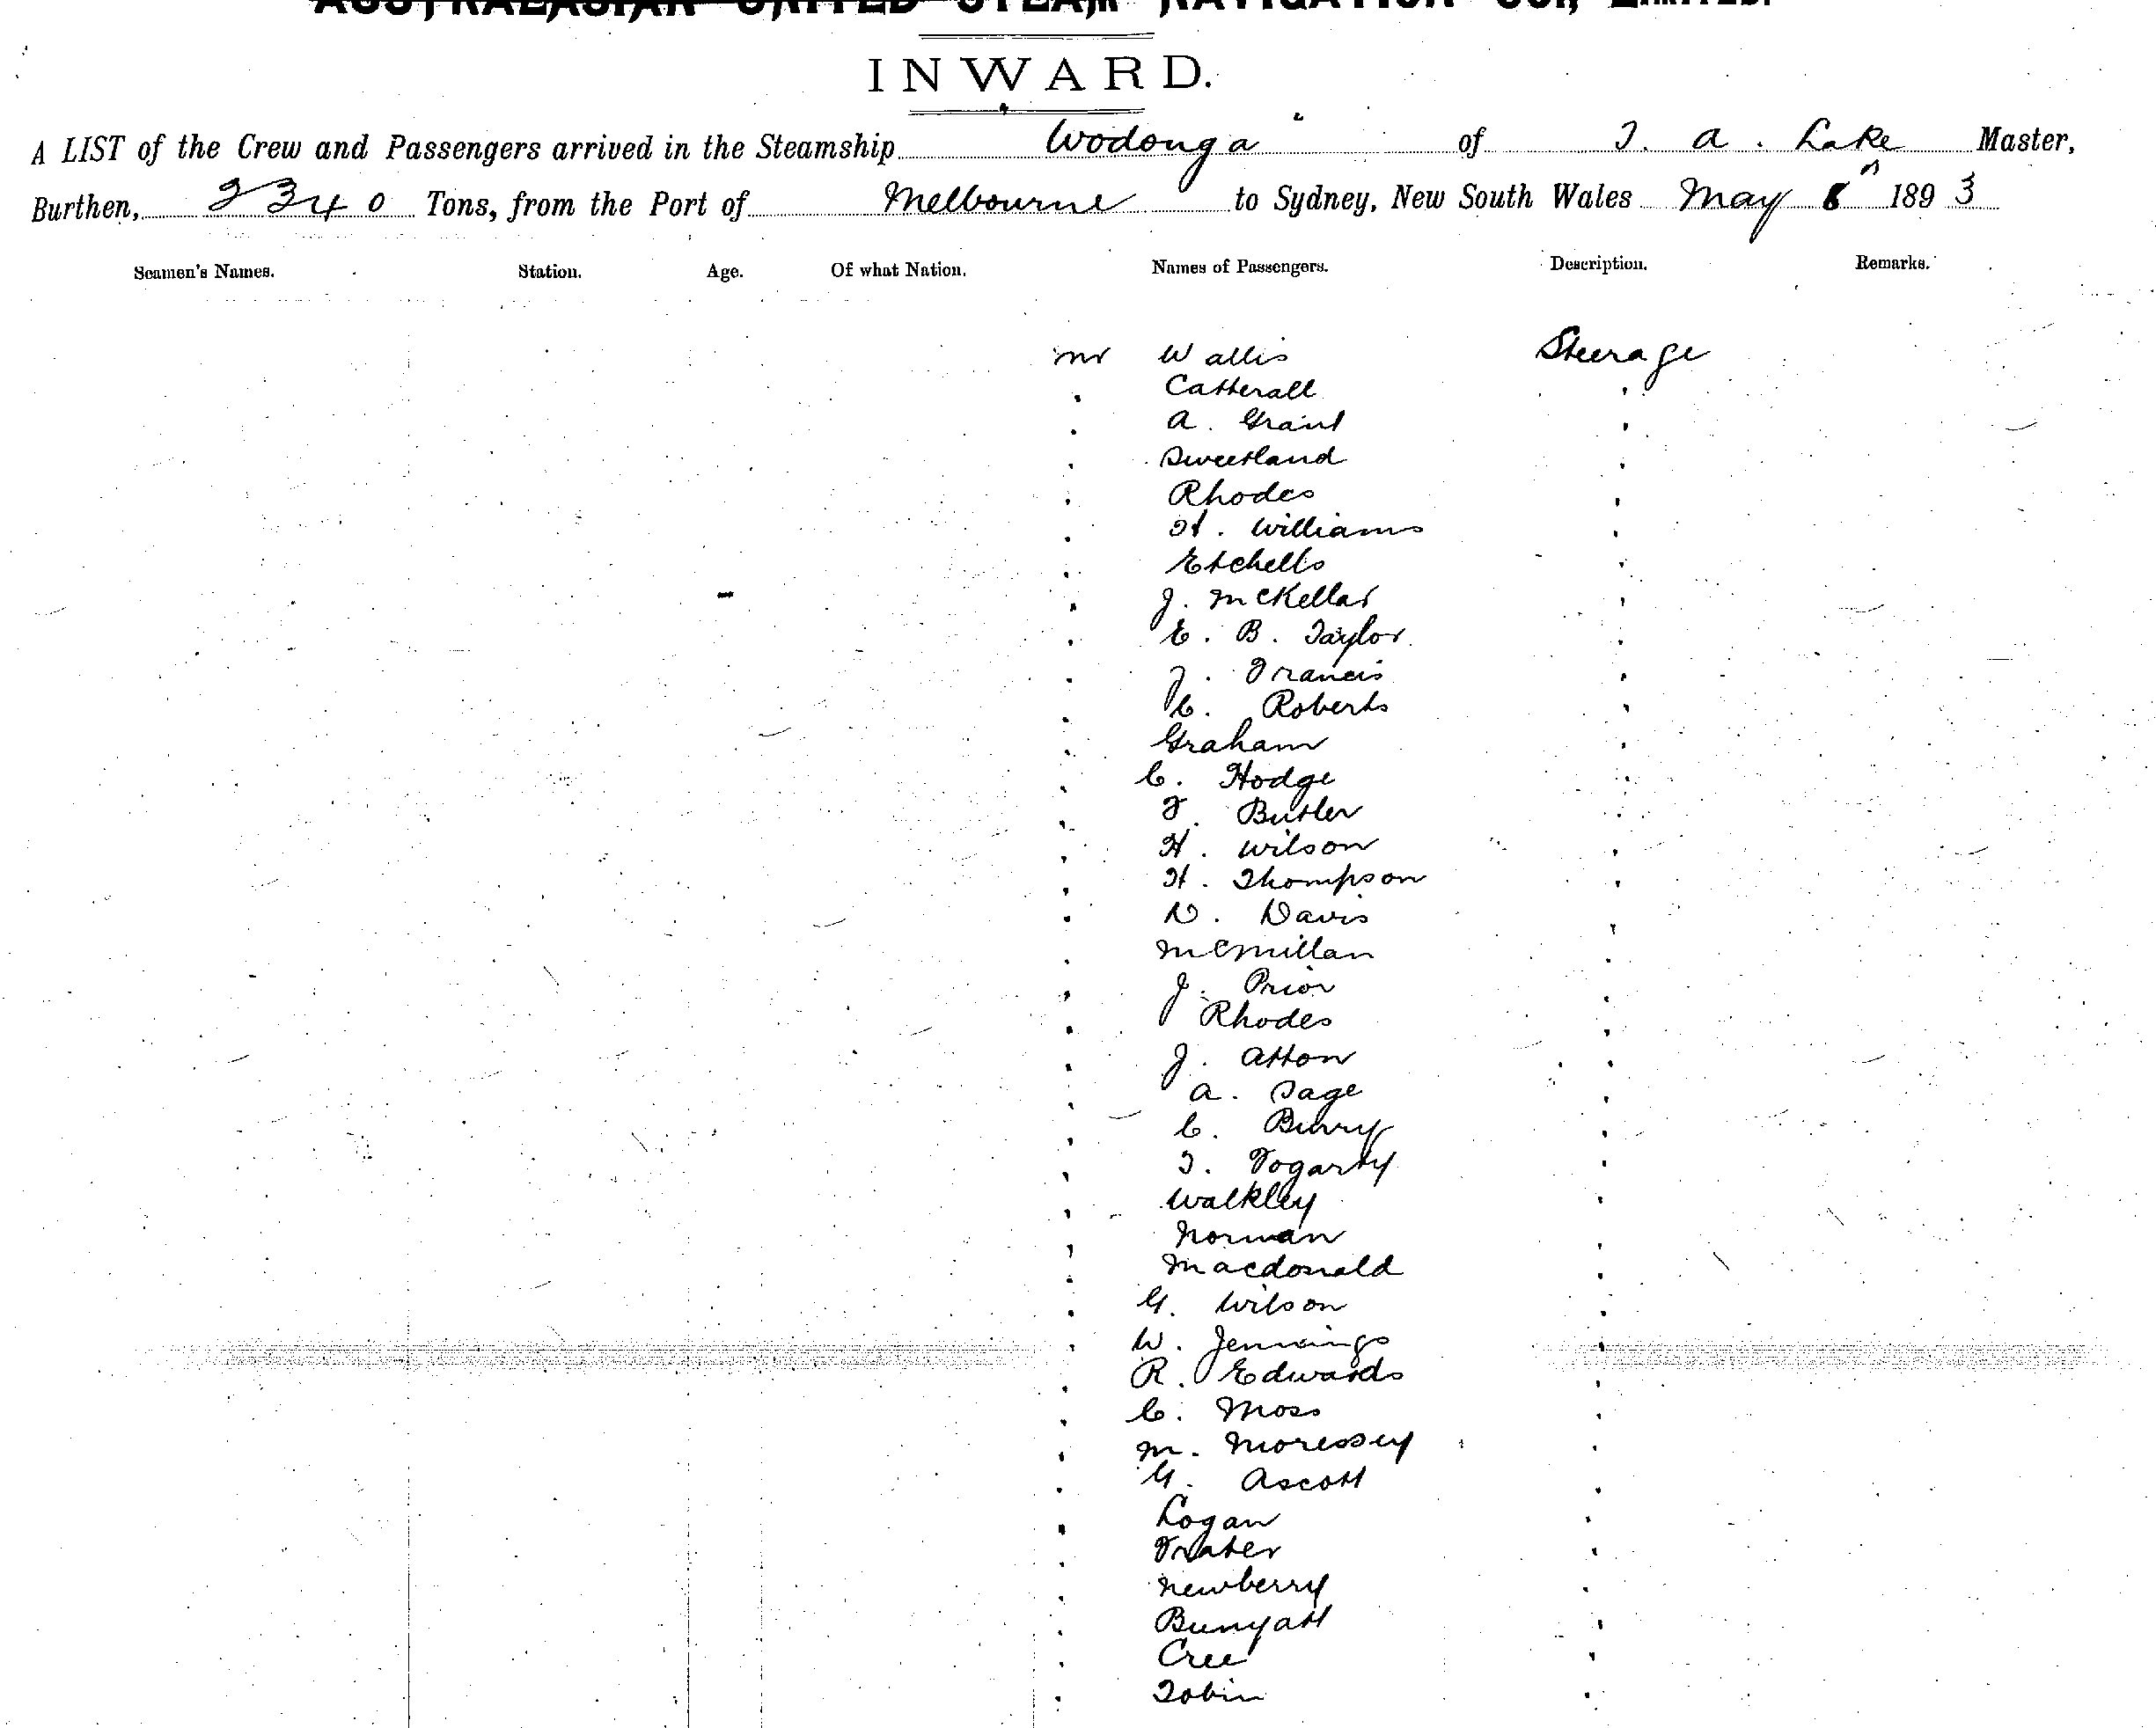 AUSTRALASIAN UNITED STEAM NAVIGATION CO., LIMITED.
INWARD.
A LIST of the Crew and Passengers arrived in the Steamship "Wodonga" of T. A. Lake Master,
Burthen, 2340 Tons, from the Port of Melbourne to Sydney, New South Wales May 8th 1893
Seamen's Names. Station. Age. Of what Nation. Names of Passengers. Description. Remarks.
Mr Wallis Steerage
" Catherall "
" A. Grant "
" Sweetland "
" Rhodes "
" H. Williams "
" Etchells "
" J. McKellar "
" E. B. Taylor "
" J. Francis "
" C. Roberts "
" Graham "
" C. Hodge "
" F. Butler "
" H. Wilson "
" H. Thompson "
" D. Davis "
" McMillan "
" J. Prior "
" Rhodes "
" J. Atton "
" A. Sage "
" C. Burry "
" T. Fogarty "
" Walkley "
" Norman "
" Macdonald "
" G. Wilson "
" W. Jennings "
" R. Edwards "
" C. Moss "
" M. Moressey "
" G. Ascott "
" Logan "
" Frater "
" Newberry "
" Bunyatt "
" Cree "
" Tobin "